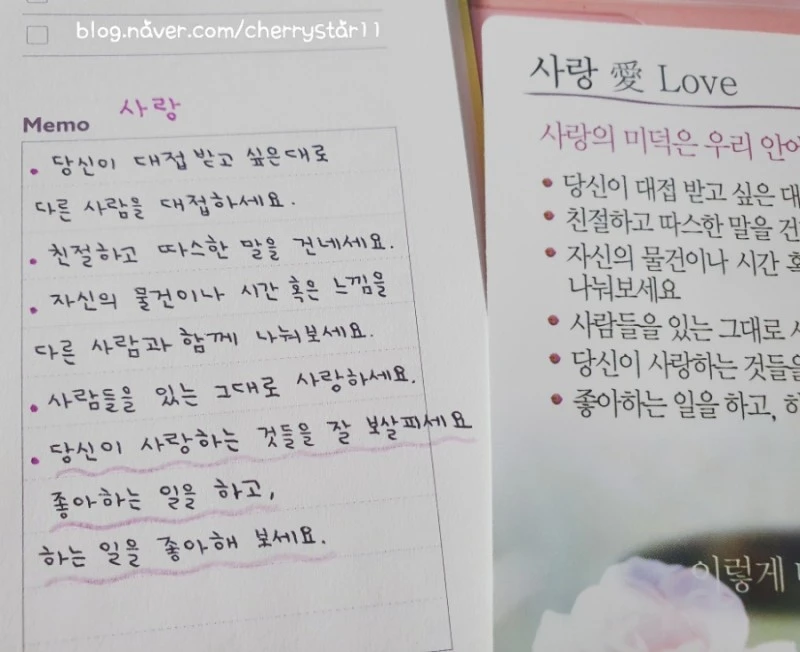 blog.naver.com/cherrystar11
Memo 사랑
• 당신이 대접 받고 싶은대로
다른 사람을 대접하세요.
• 친절하고 따스한 말을 건네세요.
• 자신의 물건이나 시간 혹은 느낌을
다른 사람과 함께 나눠보세요.
• 사람들을 있는 그대로 사랑하세요.
• 당신이 사랑하는 것들을 잘 보살피세요
좋아하는 일을 하고,
하는 일을 좋아해 보세요.
사랑 愛 Love
사랑의 미덕은 우리 안에
• 당신이 대접 받고 싶은 대
• 친절하고 따스한 말을 건
• 자신의 물건이나 시간 혹
나눠보세요
• 사람들을 있는 그대로 사
• 당신이 사랑하는 것들을
• 좋아하는 일을 하고, 하
이렇게